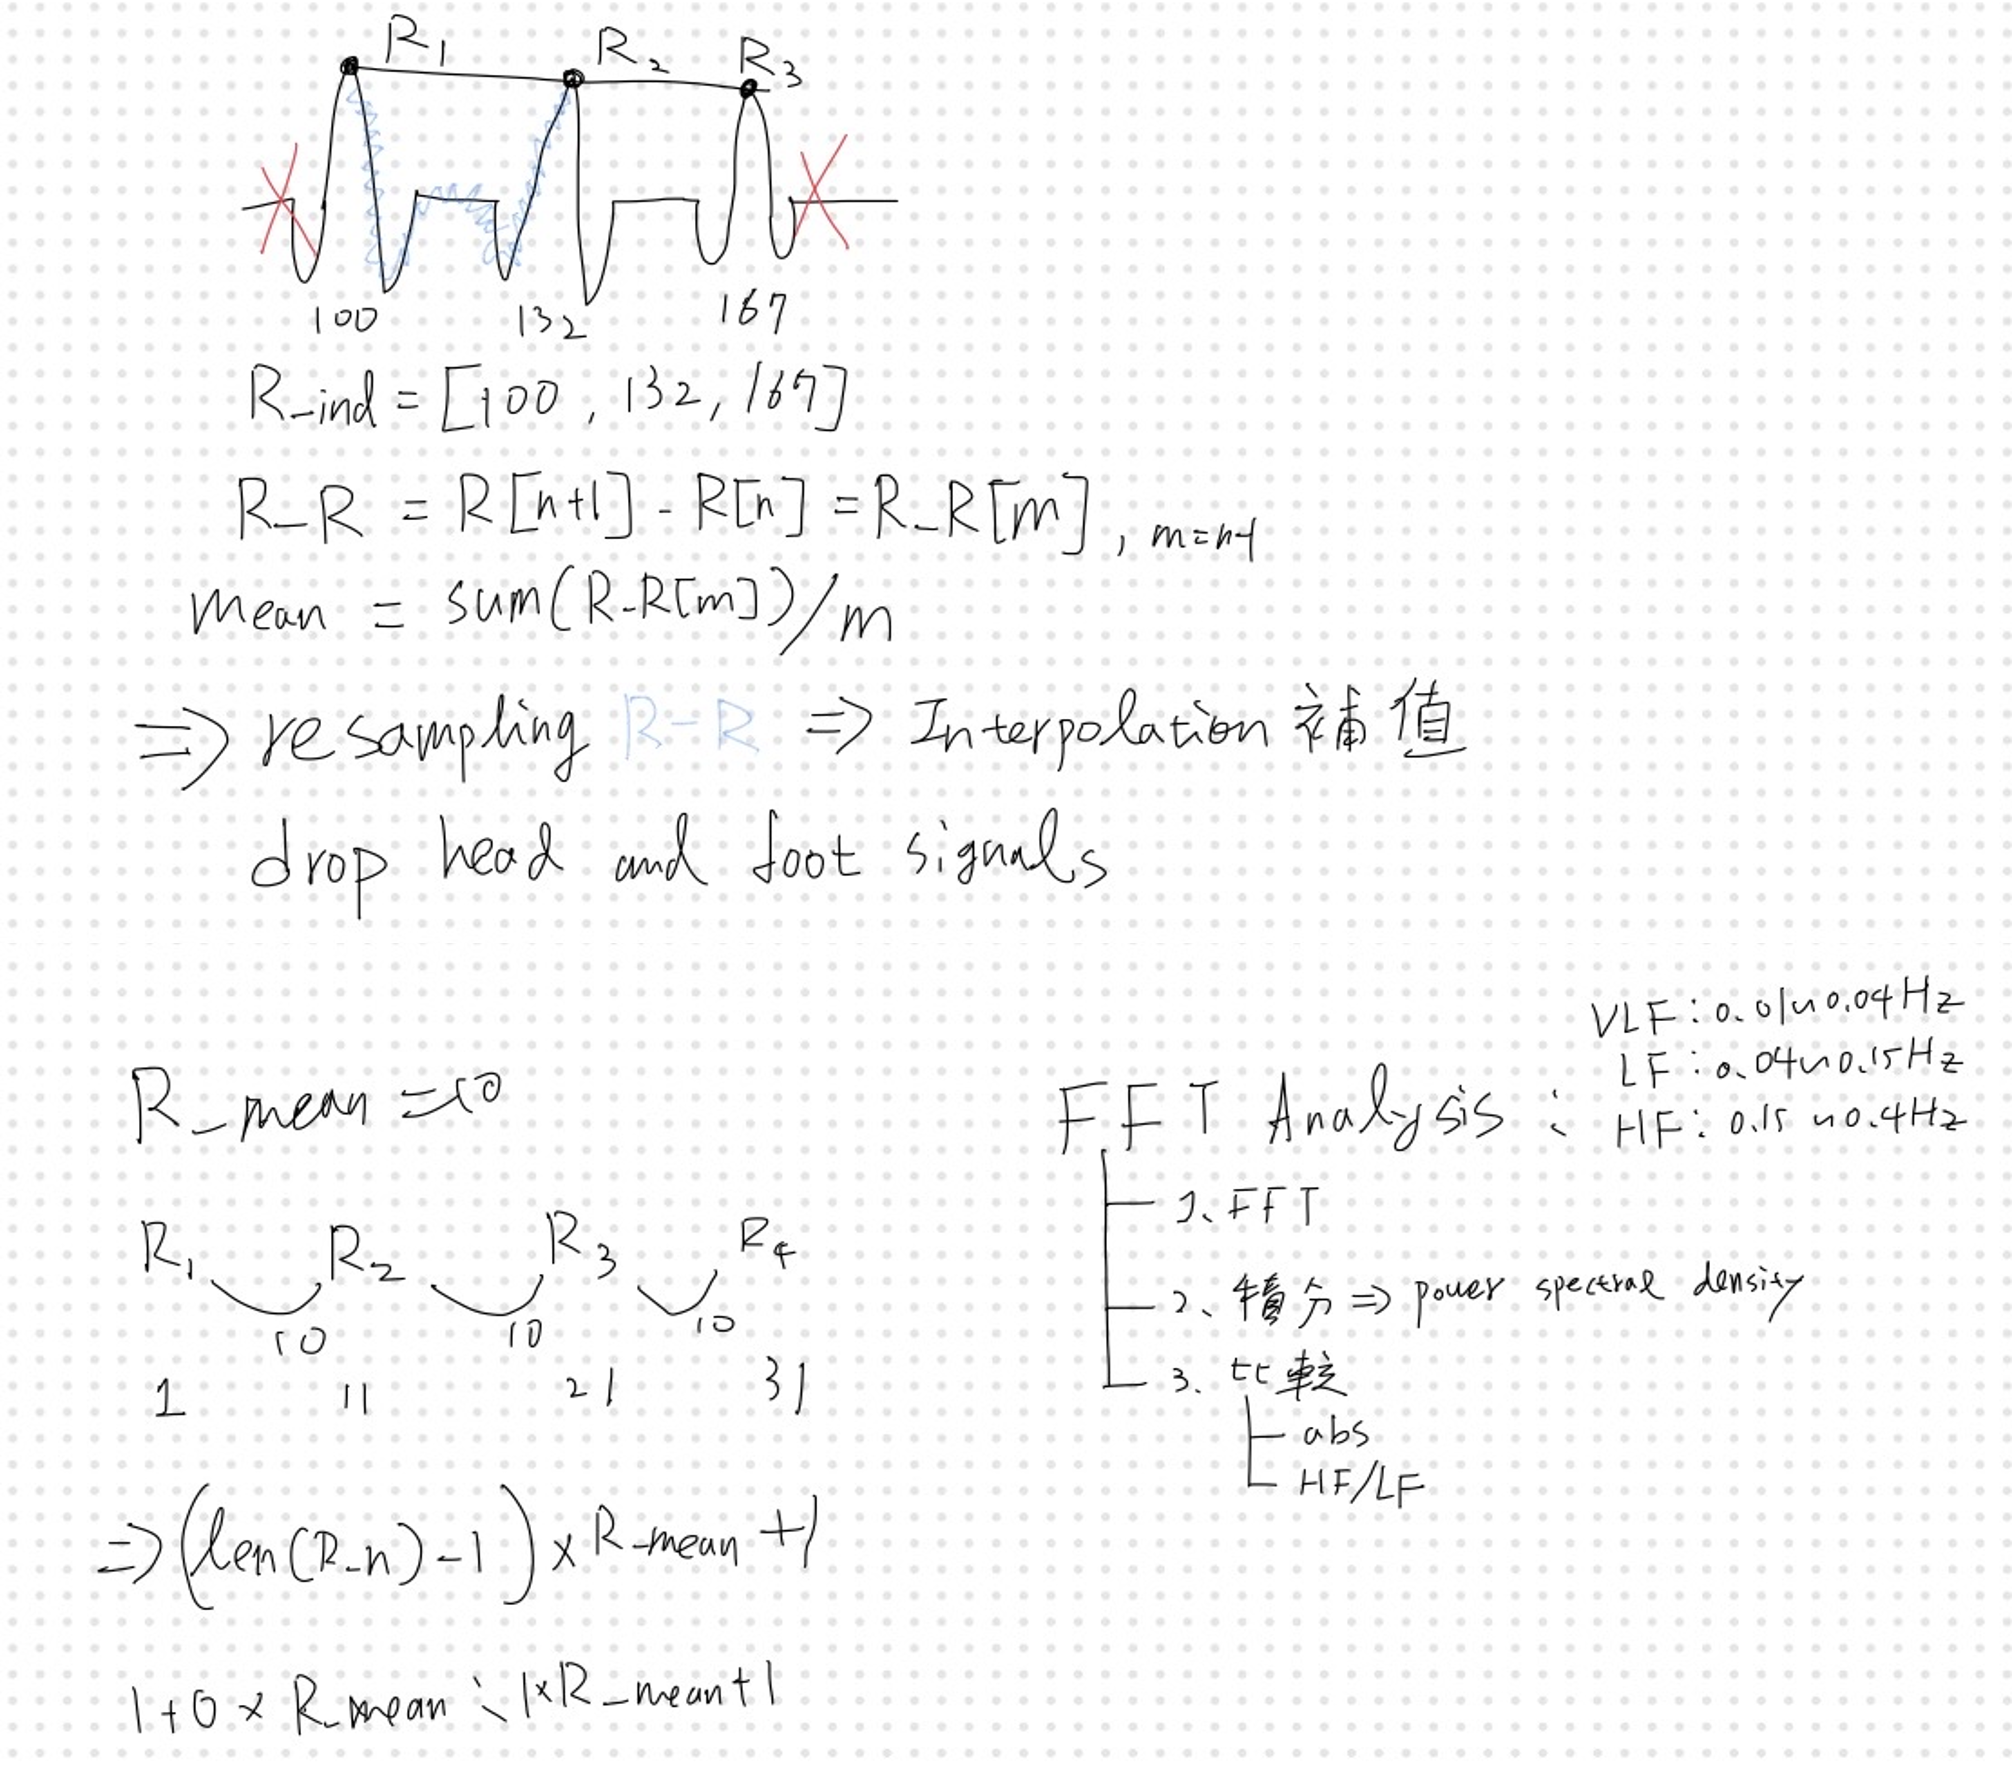 R₁ R₂ R₃
100 132 167
R_ind = [100, 132, 167]
R_R = R[n+1] - R[n] = R_R[m], m=n-1
mean = sum(R_R[m])/m
⇒ resampling R-R ⇒ Interpolation 補值
drop head and foot signals
R_mean = 10
R₁ R₂ R₃ R₄
10 10 10
1 11 21 31
⇒ (len(R_n)-1) × R_mean + 1
1+0 × R_mean : 1×R_mean+1
VLF: 0.01~0.04Hz
LF: 0.04~0.15Hz
HF: 0.15~0.4Hz
FFT Analysis:
1、FFT
2、積分 ⇒ power spectral density
3、比較
abs
HF/LF